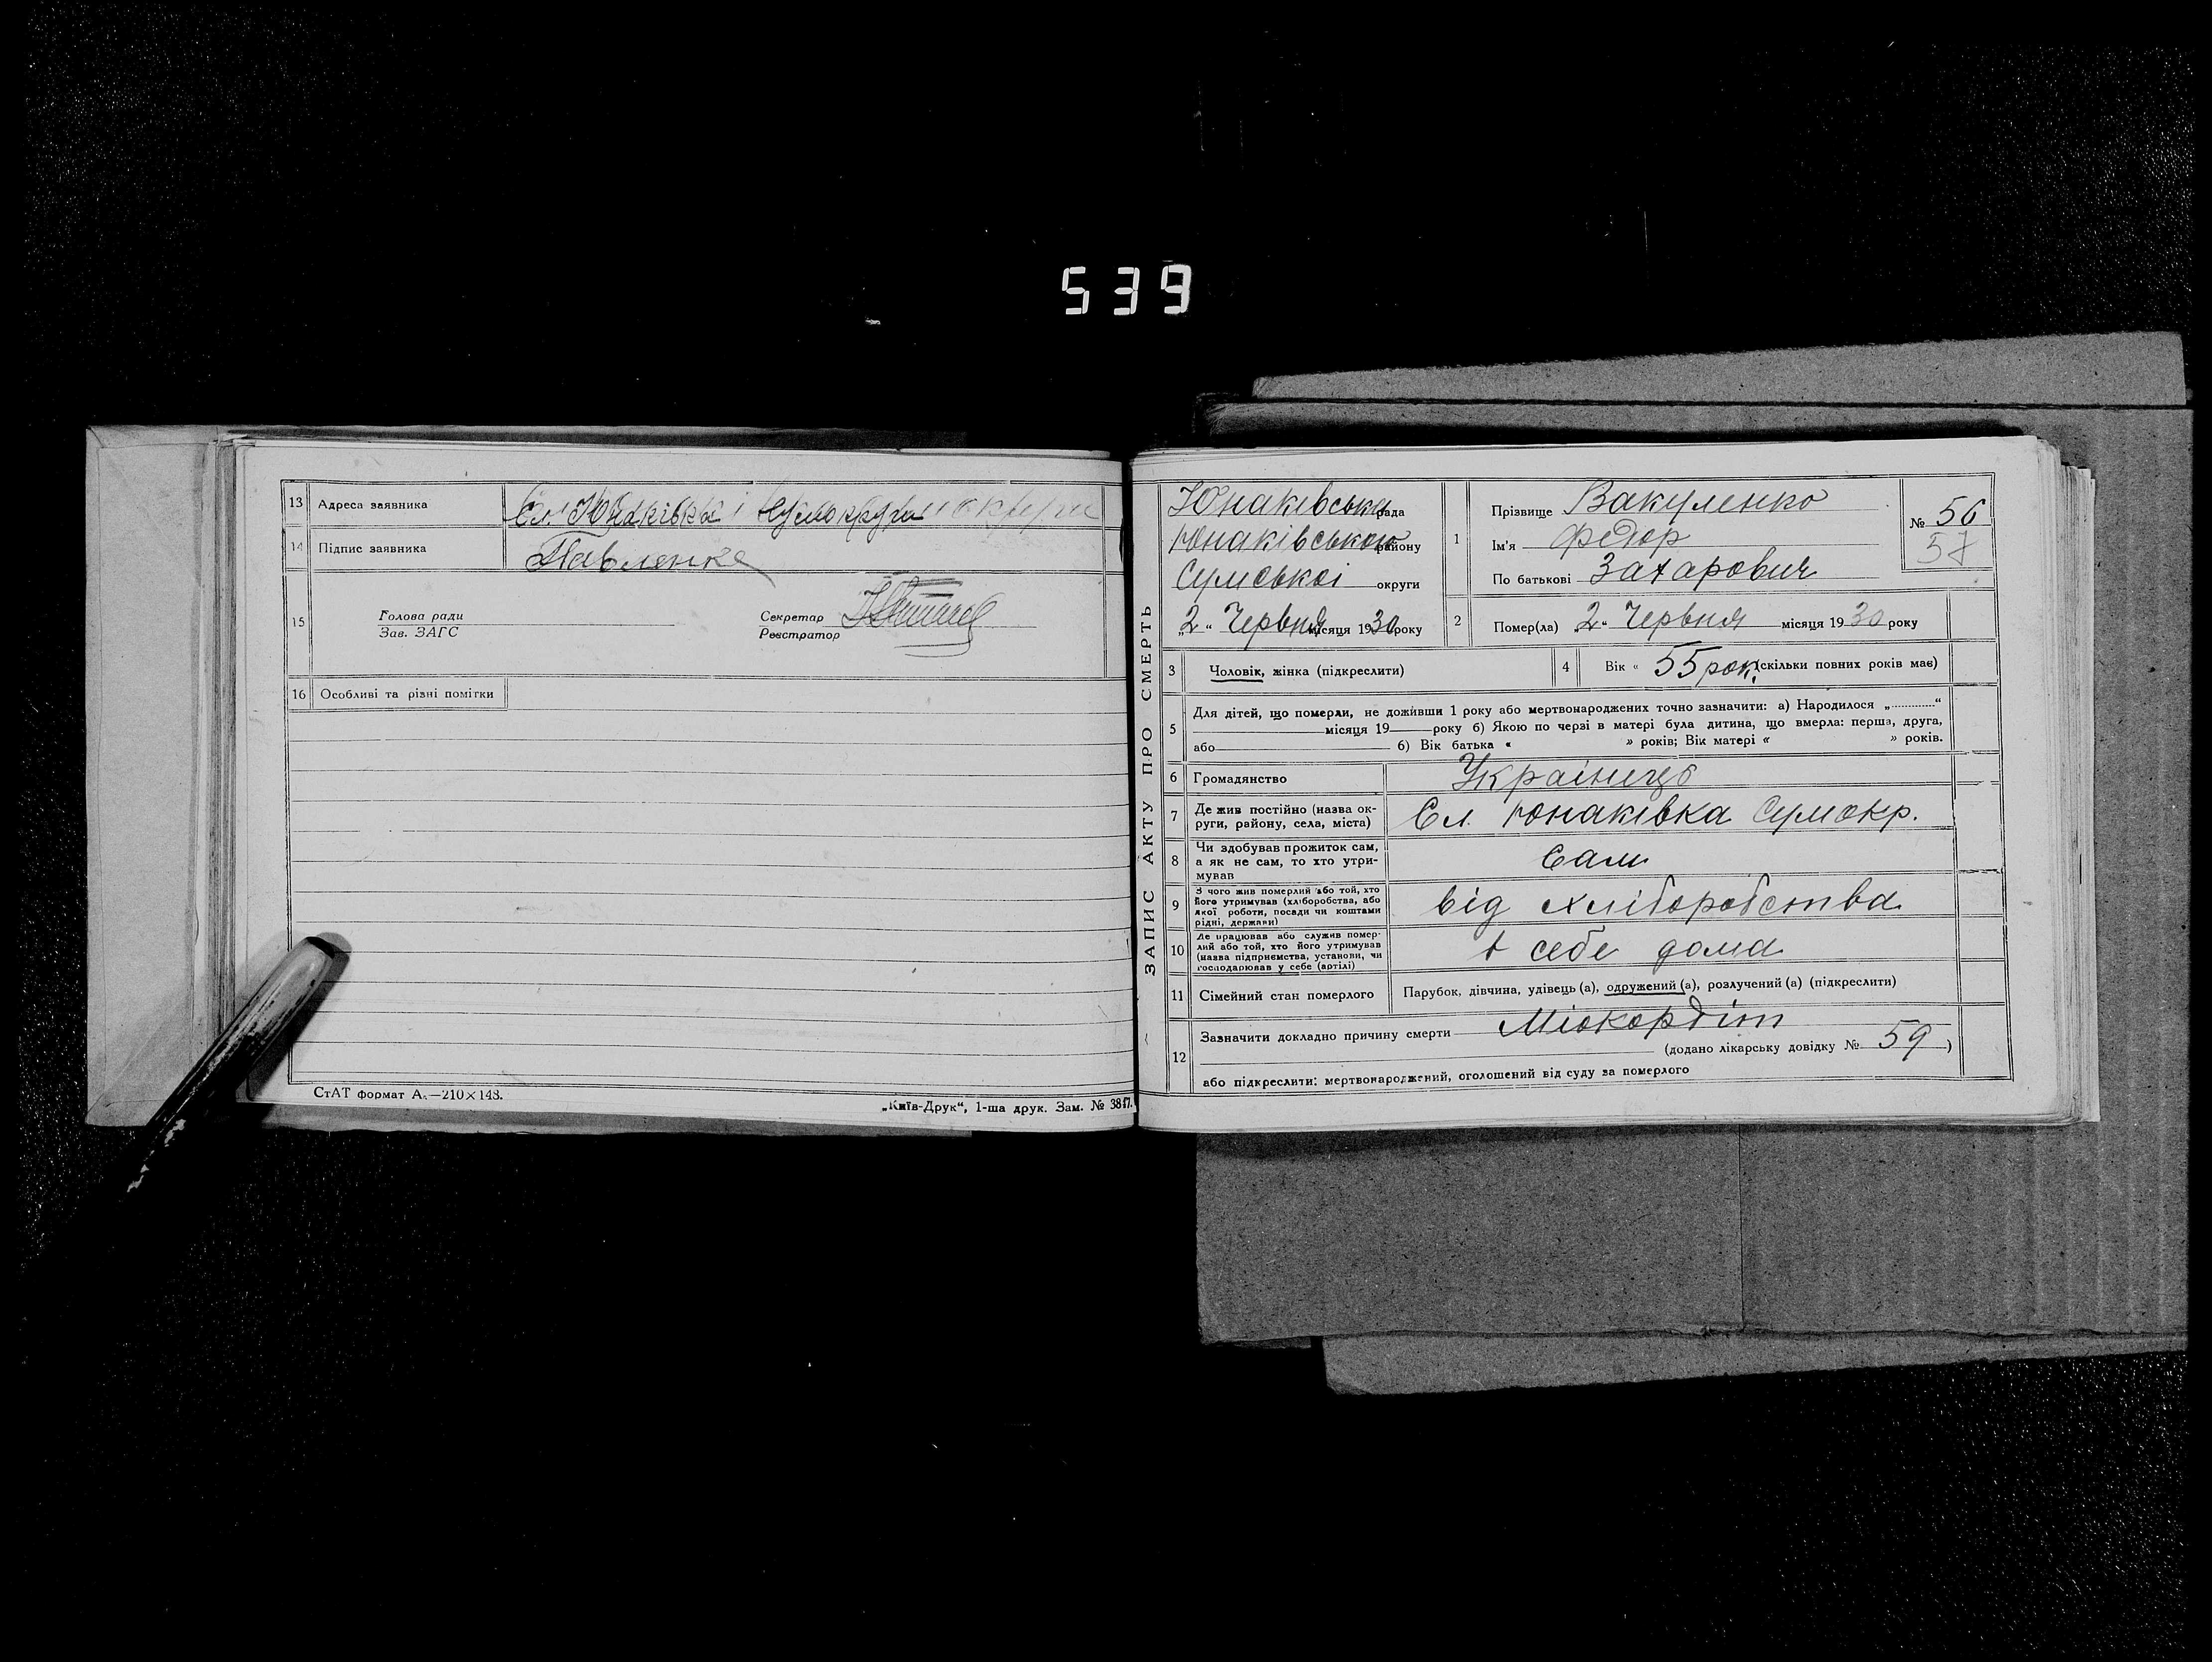 539
13 Адреса заявника Сл. Юнаківка Сумокруги
14 Підпис заявника Павленко
15 Голова ради Секретар
Зав. ЗАГС Реєстратор
16 Особливі та різні помітки
СтАТ формат А₅—210×148.
„Київ-Друк“, 1-ша друк. Зам. № 3817.
ЗАПИС АКТУ ПРО СМЕРТЬ
Юнаківська рада
Юнаківського району
Сумської округи
„2“ Червня місяця 1930 року
1 Прізвище Вакуленко
Ім'я Федор
По батькові Захарович
№ 56
57
2 Помер(ла) „2“ Червня місяця 1930 року
3 Чоловік, жінка (підкреслити)
4 Вік « 55 рок. (скільки повних років має)
5 Для дітей, що померли, не доживши 1 року або мертвонароджених точно зазначити: а) Народилося „............“
місяця 19 року б) Якою по черзі в матері була дитина, що вмерла: перша, друга,
або б) Вік батька « » років; Вік матері « » років.
6 Громадянство Українець
7 Де жив постійно (назва ок-
руги, району, села, міста) Сл. Юнаківка Сумокр.
8 Чи здобував прожиток сам,
а як не сам, то хто утри-
мував Сам
9 З чого жив померлий або той, хто
його утримував (хліборобства, або
якої роботи, посади чи коштами
рідні, держави) від хліборобства
10 Де працював або служив помер-
лий або той, хто його утримував
(назва підприємства, установи, чи
господарював у себе (артілі) в себе дома
11 Сімейний стан померлого Парубок, дівчина, удівець (а), одружений (а), розлучений (а) (підкреслити)
12 Зазначити докладно причину смерти Міокордіт
(додано лікарську довідку № 59 )
або підкреслити: мертвонароджений, оголошений від суду за померлого